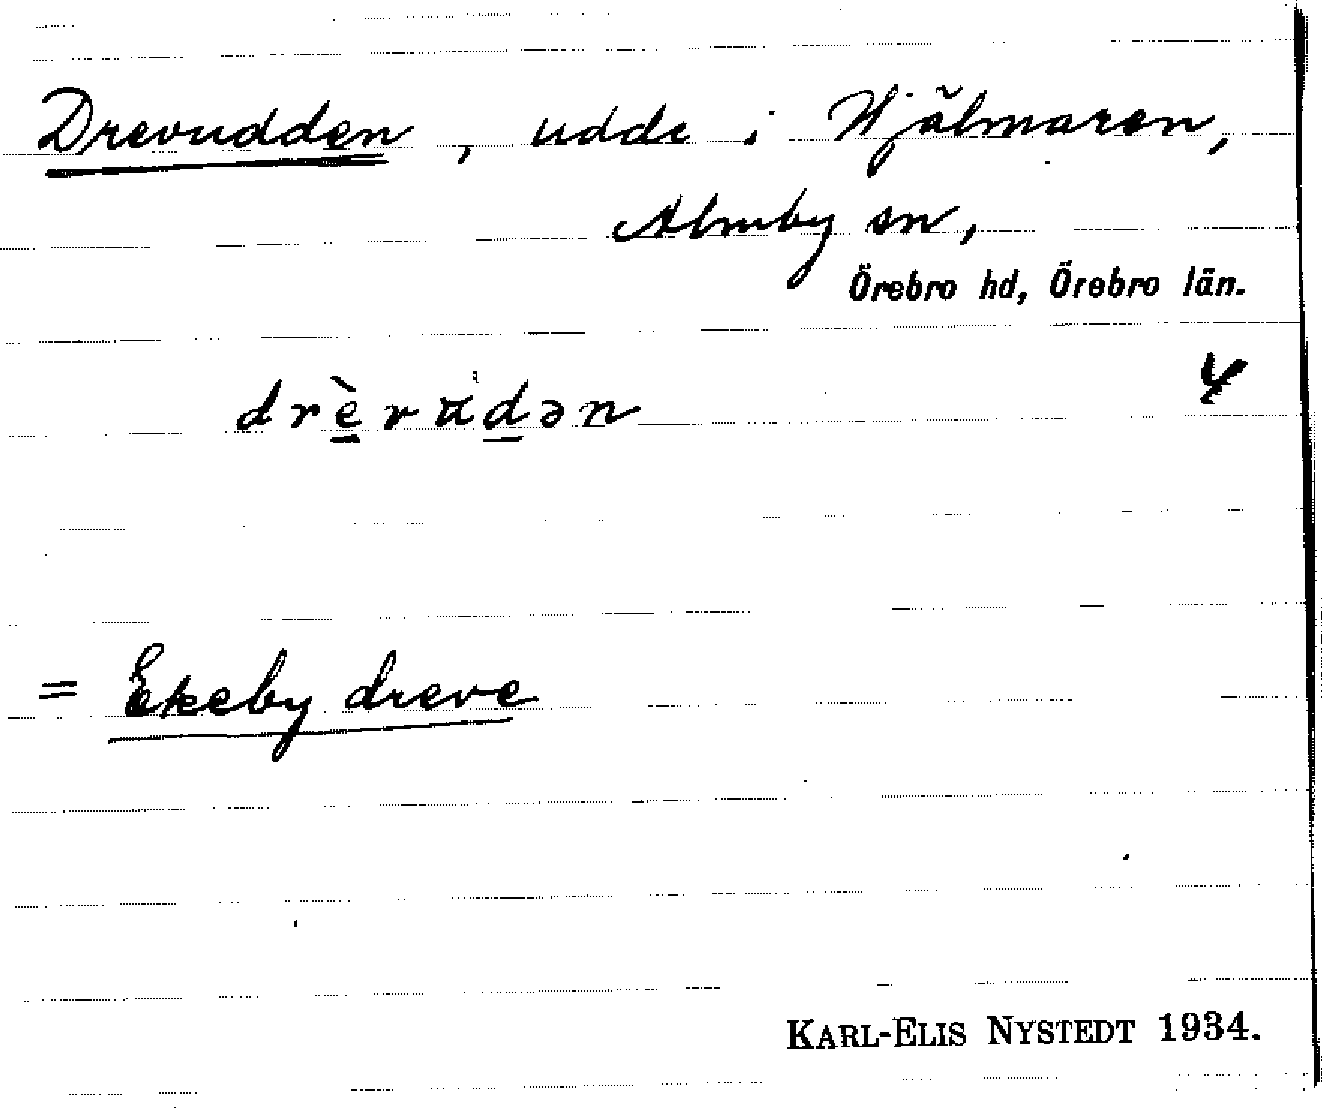 Drevudden, udde i Hjälmaren,
Almby sn,
Örebro hd, Örebro län.
drèvudən
= Ekeby dreve
KARL-ELIS NYSTEDT 1934.